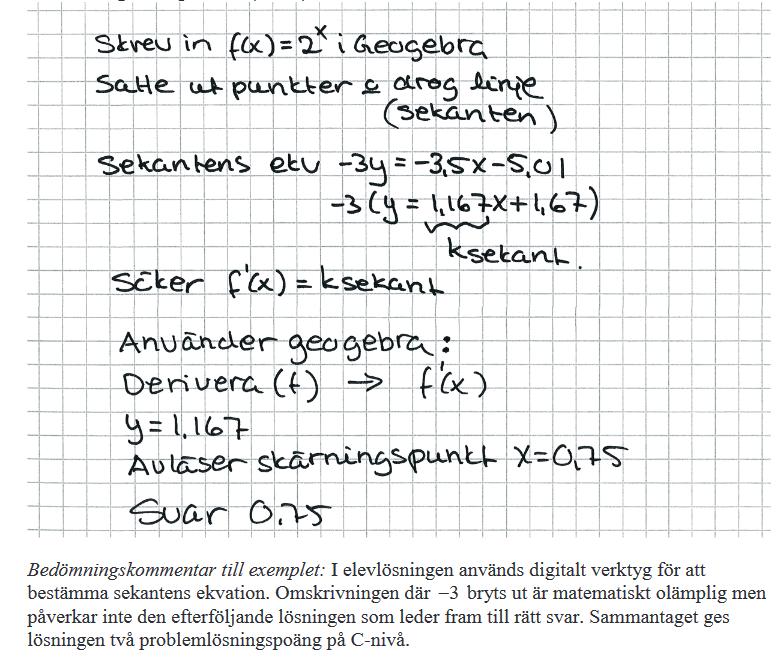 Skrev in f(x)=2^x i Geogebra
Satte ut punkter & drog linje
(sekanten)
Sekantens ekv -3y=-3,5x-5,01
-3(y=1,167x+1,67)
ksekant.
Söker f'(x)=ksekant
Använder geogebra:
Derivera(f) → f'(x)
y=1,167
Avläser skärningspunkt x=0,75
Svar 0,75
Bedömningskommentar till exemplet: I elevlösningen används digitalt verktyg för att
bestämma sekantens ekvation. Omskrivningen där −3 bryts ut är matematiskt olämplig men
påverkar inte den efterföljande lösningen som leder fram till rätt svar. Sammantaget ges
lösningen två problemlösningspoäng på C-nivå.